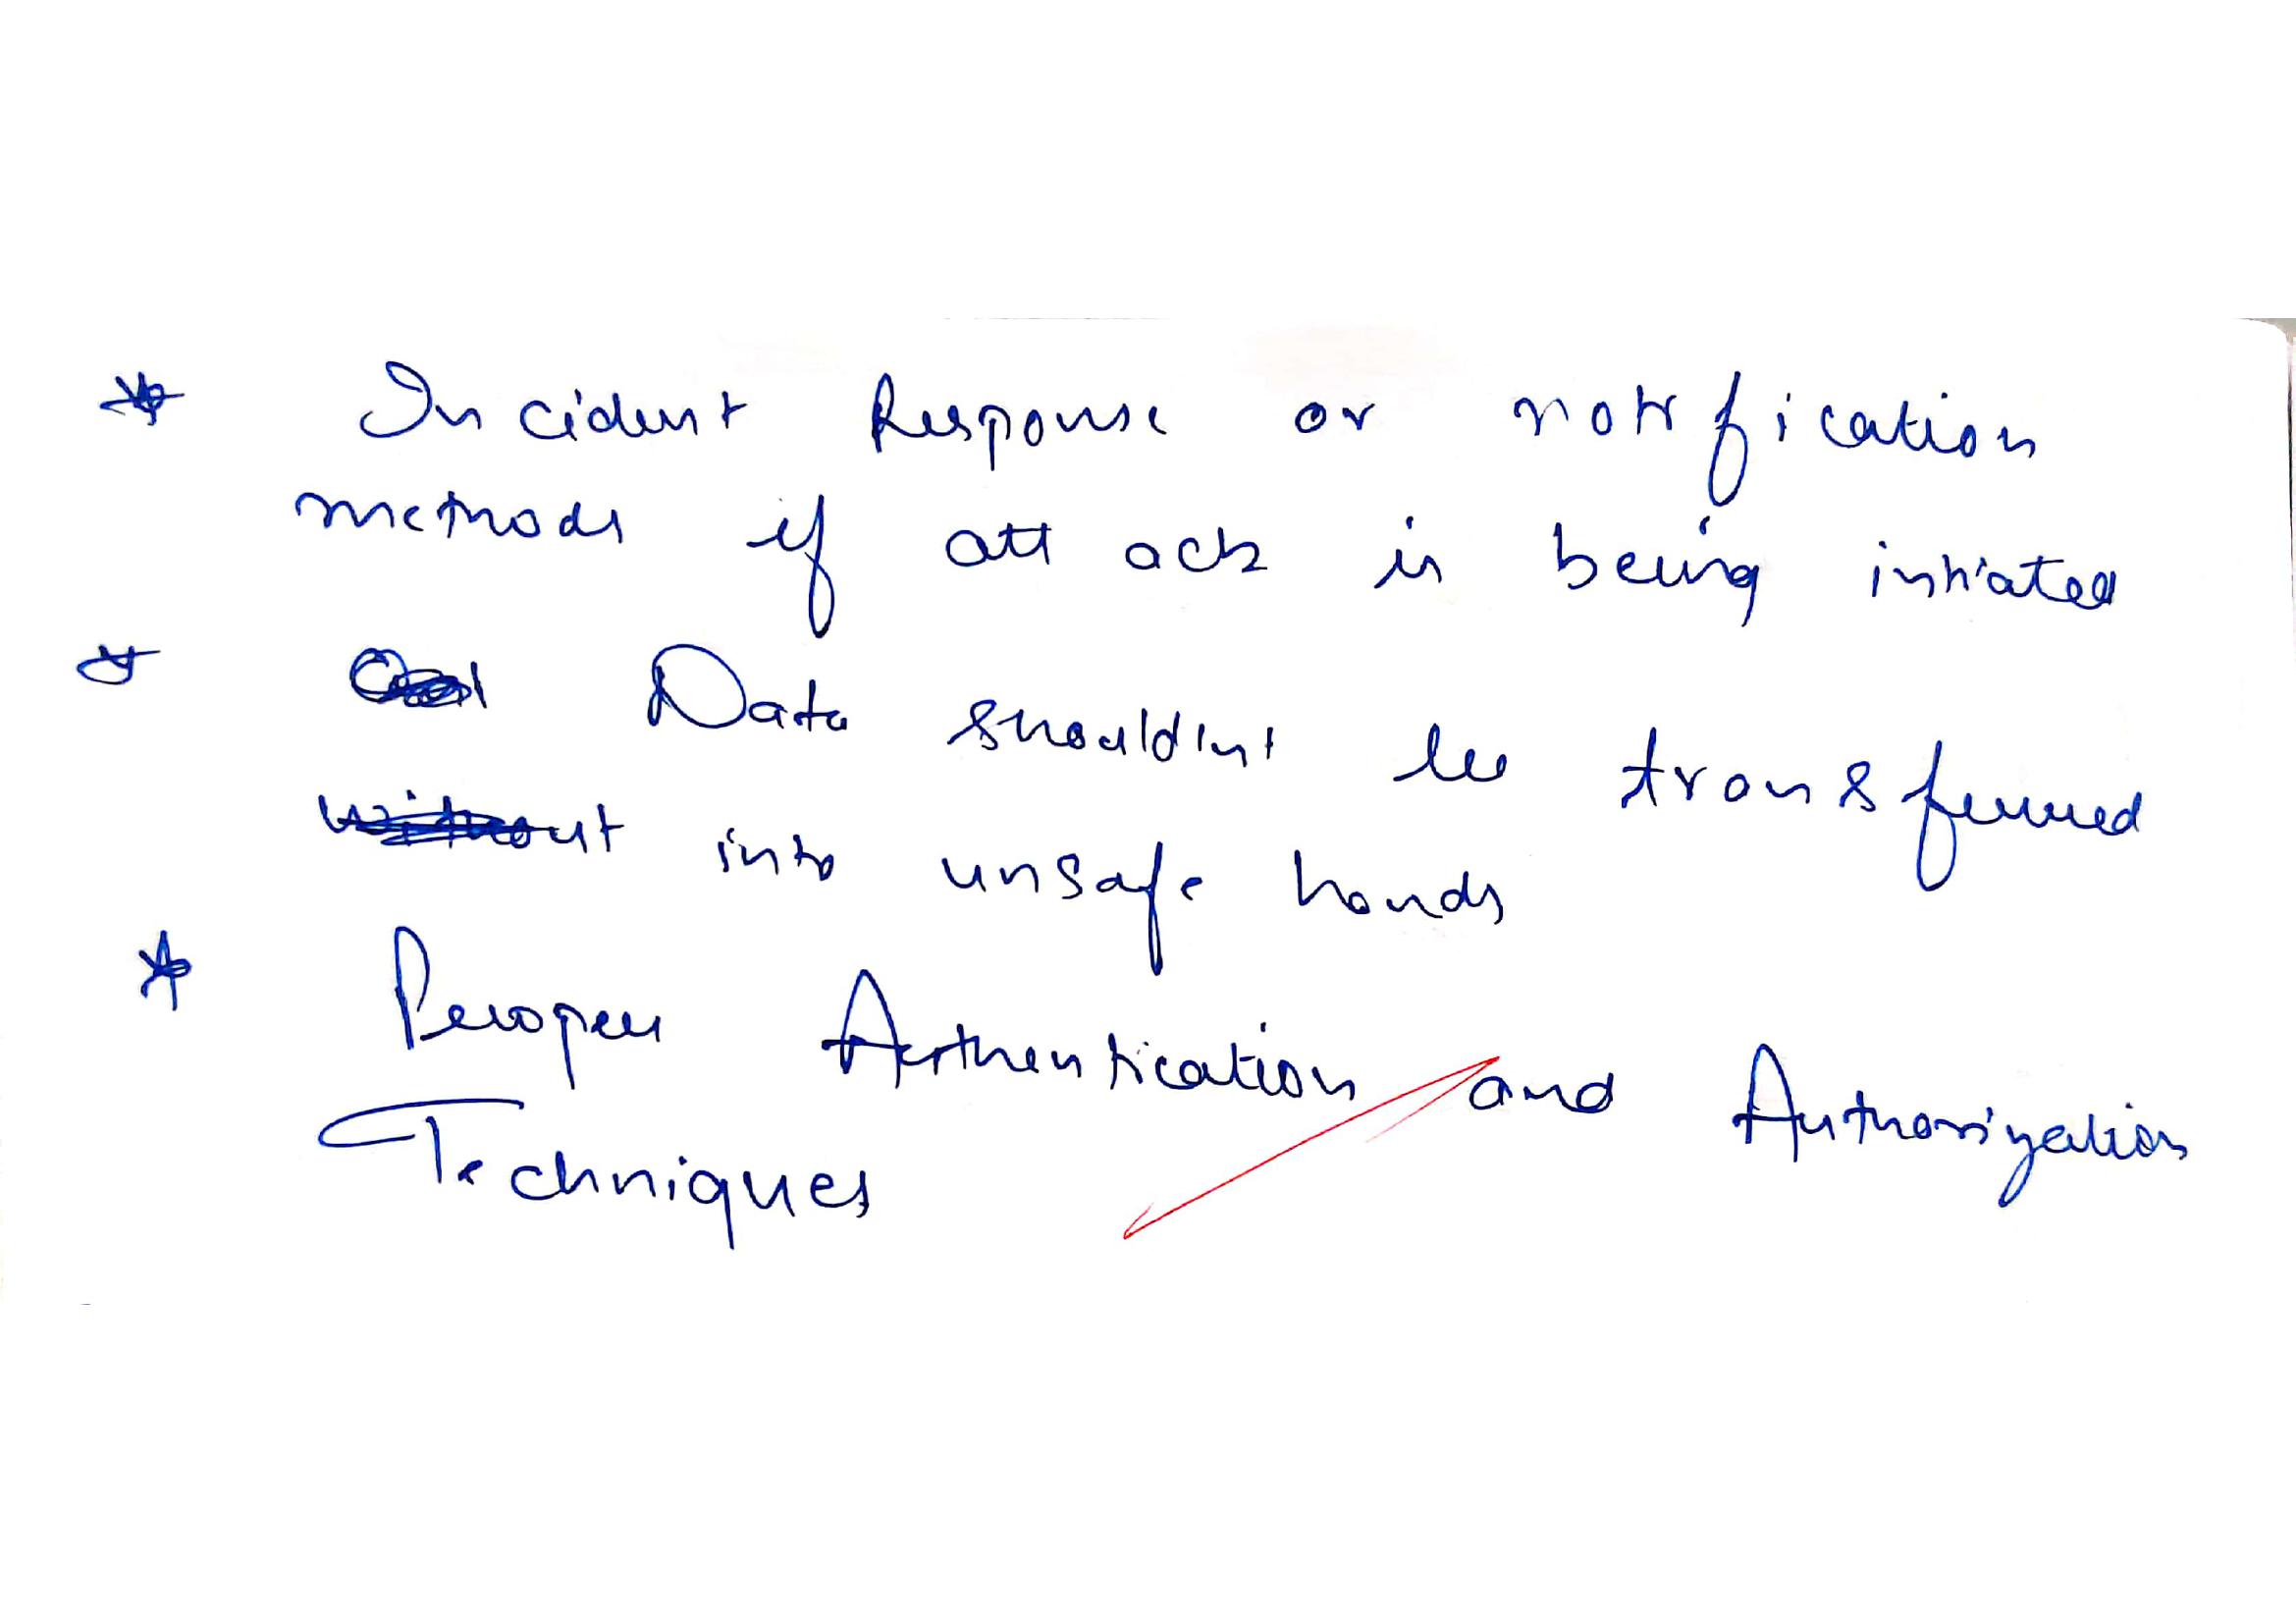 * Incident Response or notification
methods if attack is being initiated
* Data shouldn't be transferred
without into unsafe hands
* Proper Authentication and Authorization
Techniques